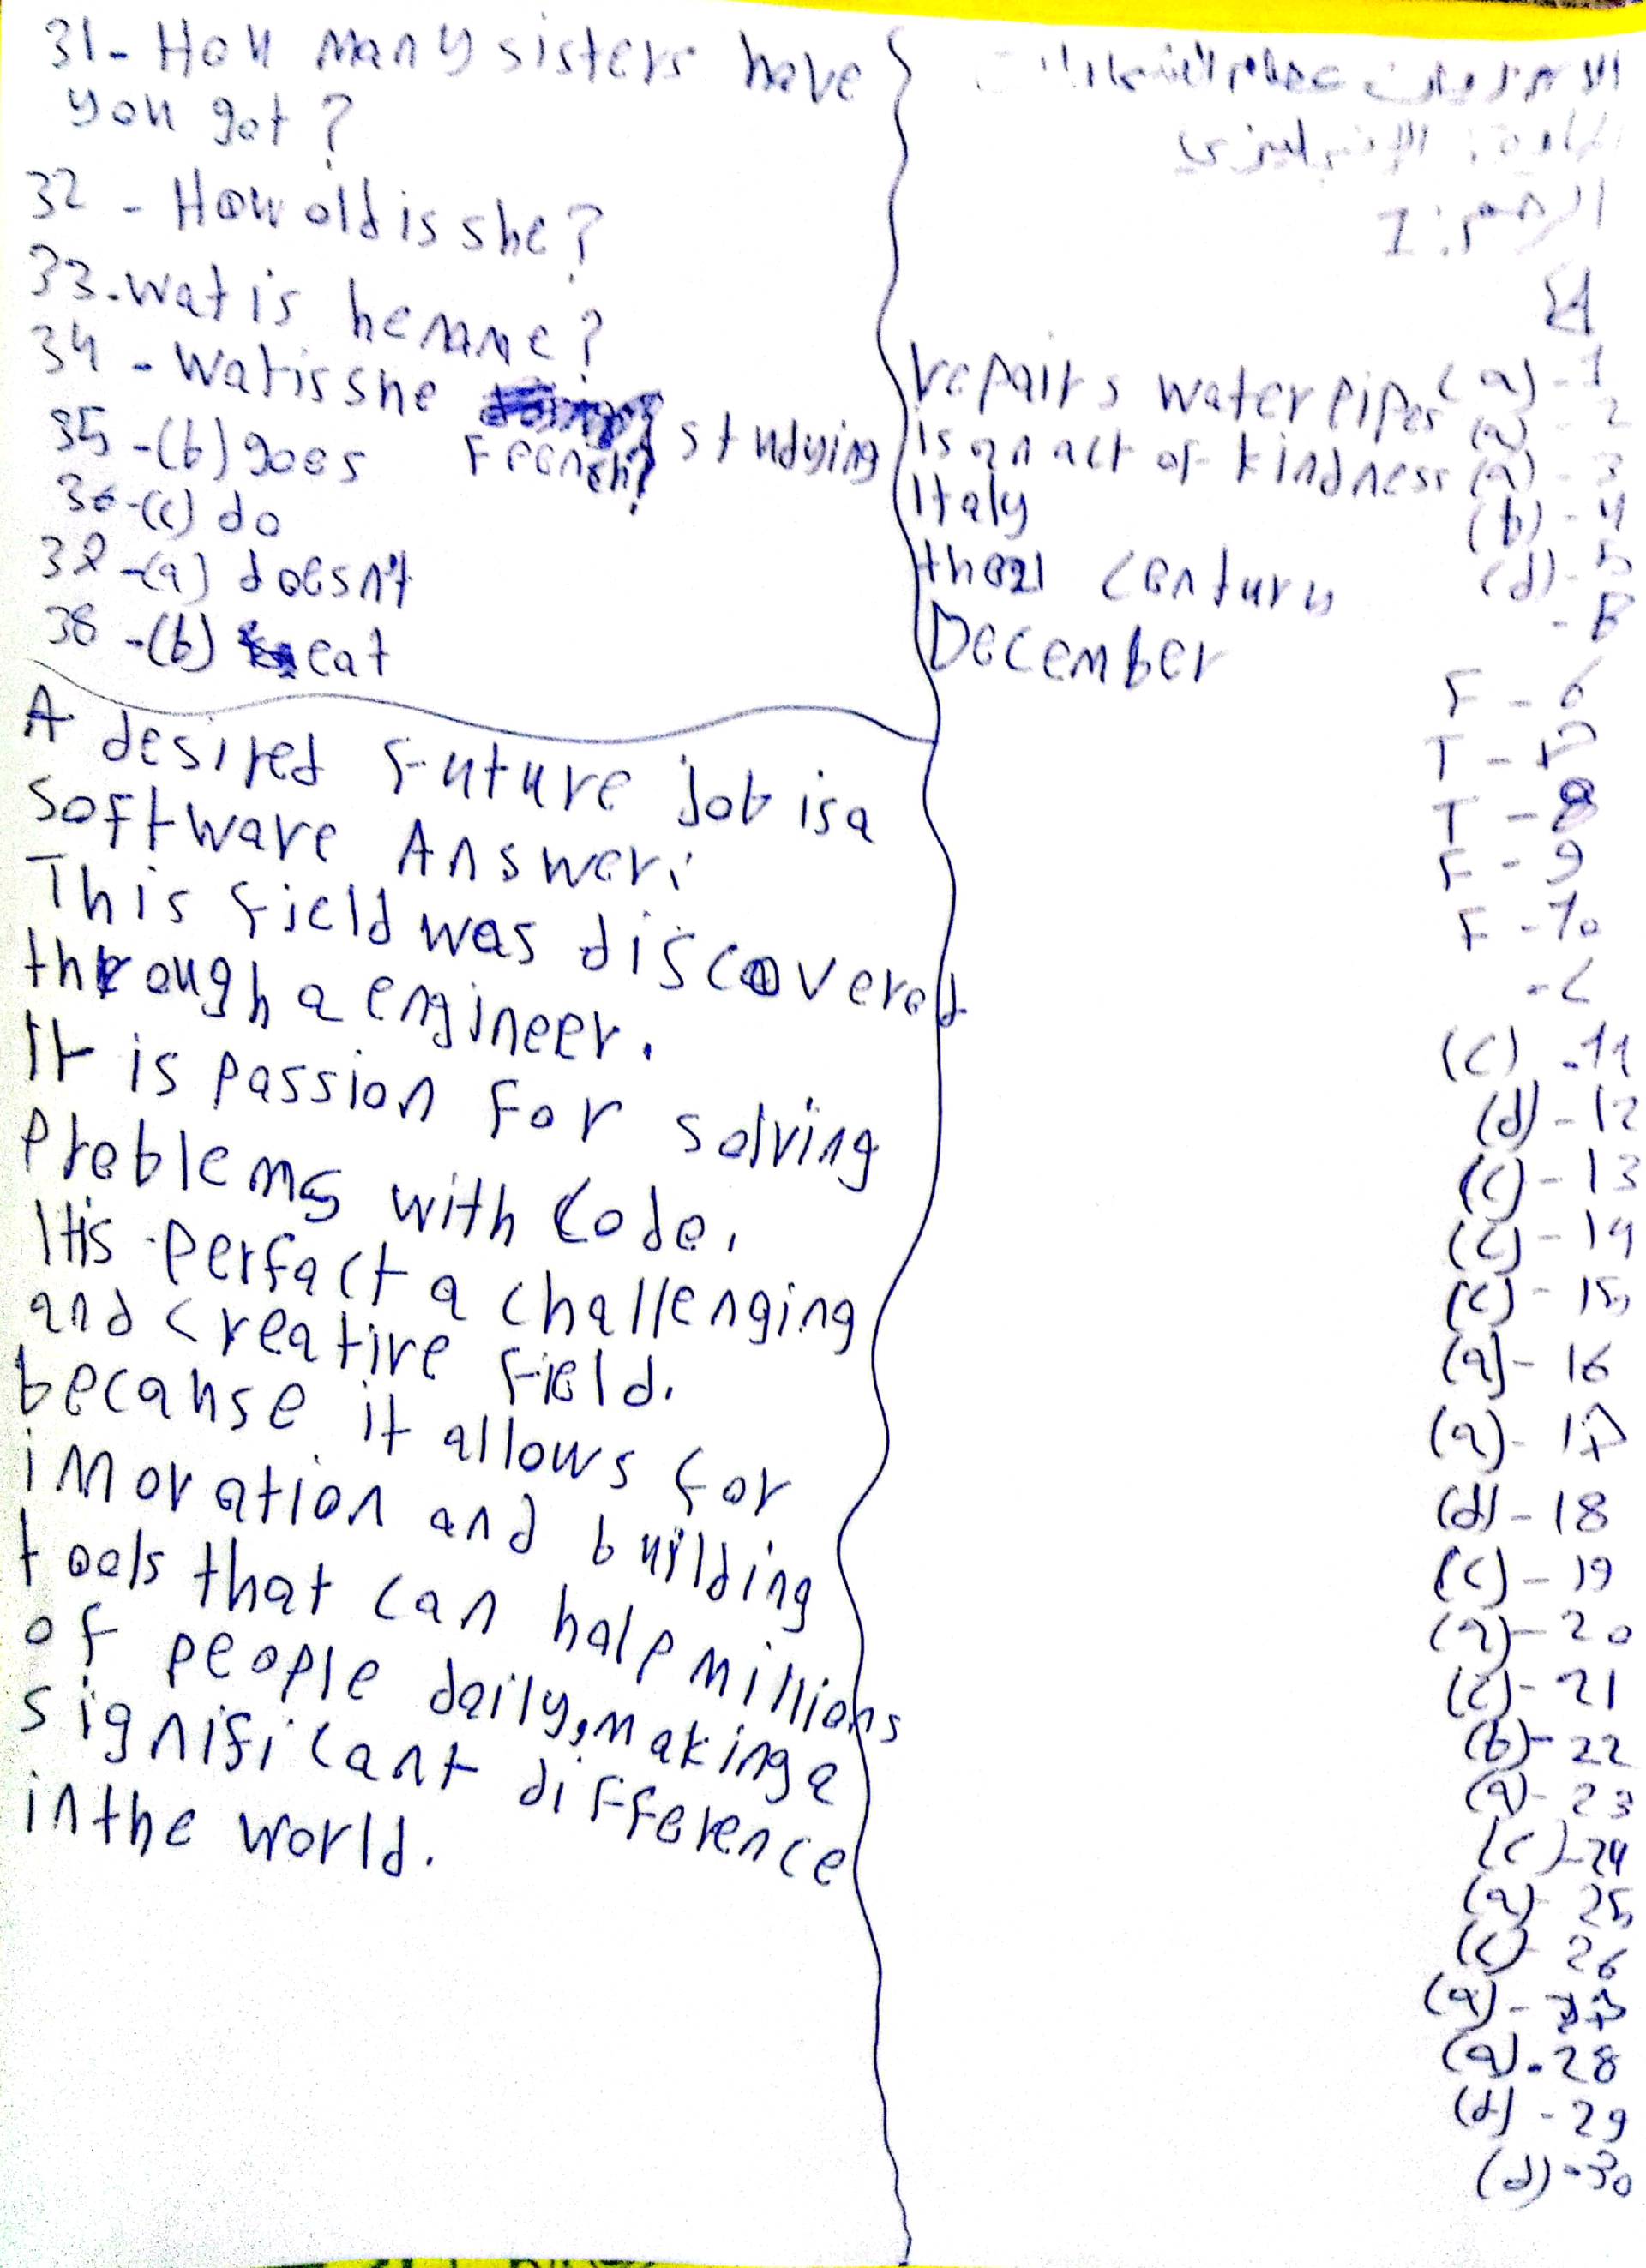 المادة: الإنجليزي
A
repairs water pipes (a) - 1
is an act of kindness (a) - 2
Italy (a) - 3
the 21 century (b) - 4
December (d) - 5
- B
F - 6
T - 7
T - 8
F - 9
F - 10
- C
(c) - 11
(d) - 12
(c) - 13
(c) - 14
(c) - 15
(a) - 16
(a) - 17
(d) - 18
(c) - 19
(a) - 20
(c) - 21
(b) - 22
(a) - 23
(c) - 24
(a) - 25
(c) - 26
(a) - 27
(a) - 28
(d) - 29
(d) - 30
31 - How many sisters have
you got?
32 - How old is she?
33 - wat is he name?
34 - wat is she studying
French?
35 - (b) goes
36 - (c) do
37 - (a) doesn't
38 - (b) eat
A desired future job is a
software Answer:
This field was discovered
through a engineer.
It is passion for solving
problems with code.
It is perfact a challenging
and creative field.
because it allows for
innovation and building
tools that can halp millions
of people daily, making a
significant difference
in the world.